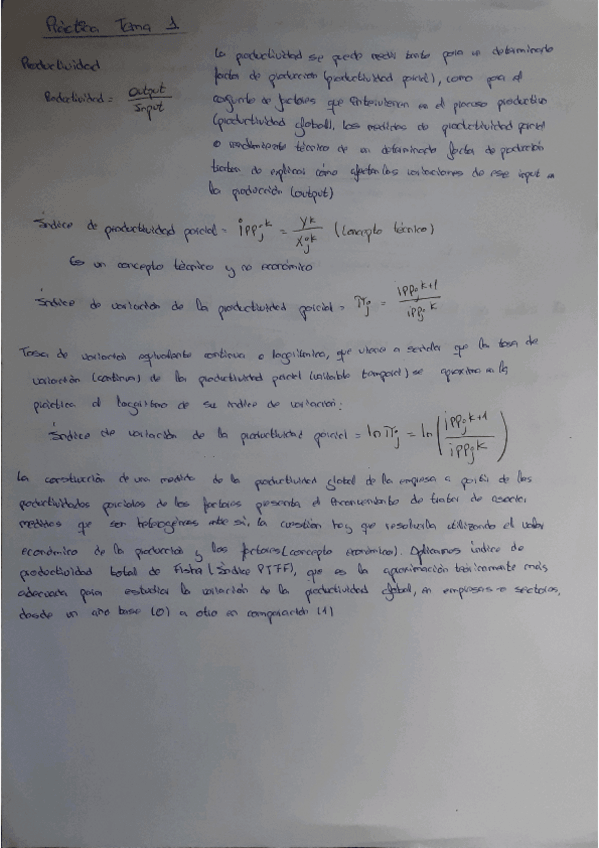 Práctica Tema 1
Productividad
Productividad = Output / Input
La productividad se puede medir tanto para un determinado
factor de producción (productividad parcial), como para el
conjunto de factores que intervienen en el proceso productivo
(productividad global), las medidas de productividad parcial
o rendimiento técnico de un determinado factor de producción
tratan de explicar cómo afectan las variaciones de ese input en
la producción (output)
Índice de productividad parcial = ipp_j^k = y^k / x_j^k (concepto técnico)
Es un concepto técnico y no económico
Índice de variación de la productividad parcial = π_j = ipp_j^k+1 / ipp_j^k
Tasa de variación equivalente continua o logarítmica, que viene a señalar que la tasa de
variación (continua) de la productividad parcial (variable temporal) se aproxima en la
práctica al logaritmo de su índice de variación:
Índice de variación de la productividad parcial = ln π_j = ln (ipp_j^k+1 / ipp_j^k)
La construcción de una medida de la productividad global de la empresa a partir de las
productividades parciales de los factores presenta el inconveniente de tratar de asociar
medidas que son heterogéneas entre sí, la cuestión hay que resolverla utilizando el valor
económico de la producción y los factores (concepto económico). Aplicamos índice de
productividad total de Fisher (Índice PTFF), que es la aproximación teóricamente más
adecuada para estudiar la variación de la productividad global, en empresas o sectores,
desde un año base (0) a otro en comparación (1)